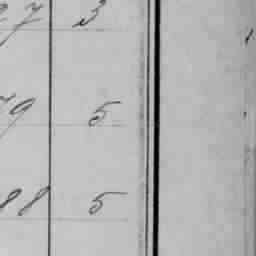 27 3
79 5
88 5